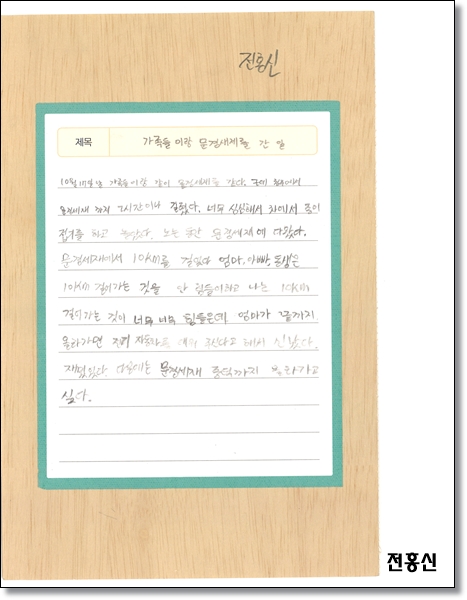 전홍신
제목 가족들이랑 문경새제를 간 일
10월 17일 날 가족들이랑 같이 문경새제를 갔다. 구미 에서
문경새재 까지 2시간이나 걸렸다. 너무 심심해서 차에서 종이
접기를 하고 놀았다. 노는 동안 문경세재에 다왔다.
문경세재에서 10km를 걸었다 엄마, 아빠, 동생은
10km 걸어가는 것을 안 힘들어하고 나는 10km
걸어가는 것이 너무 너무 힘들은데 엄마가 끝까지
올라가면 전기 자동차를 태워 주신다고 해서 신났다.
재밌었다. 다음에는 문경세재 끝까지 올라가고
싶다.
전홍신